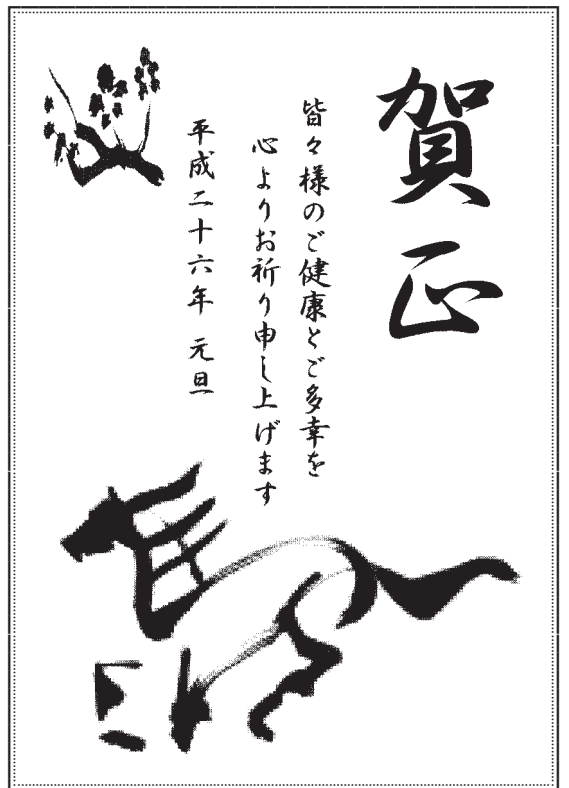 賀正
皆々様のご健康とご多幸を
心よりお祈り申し上げます
平成二十六年 元旦